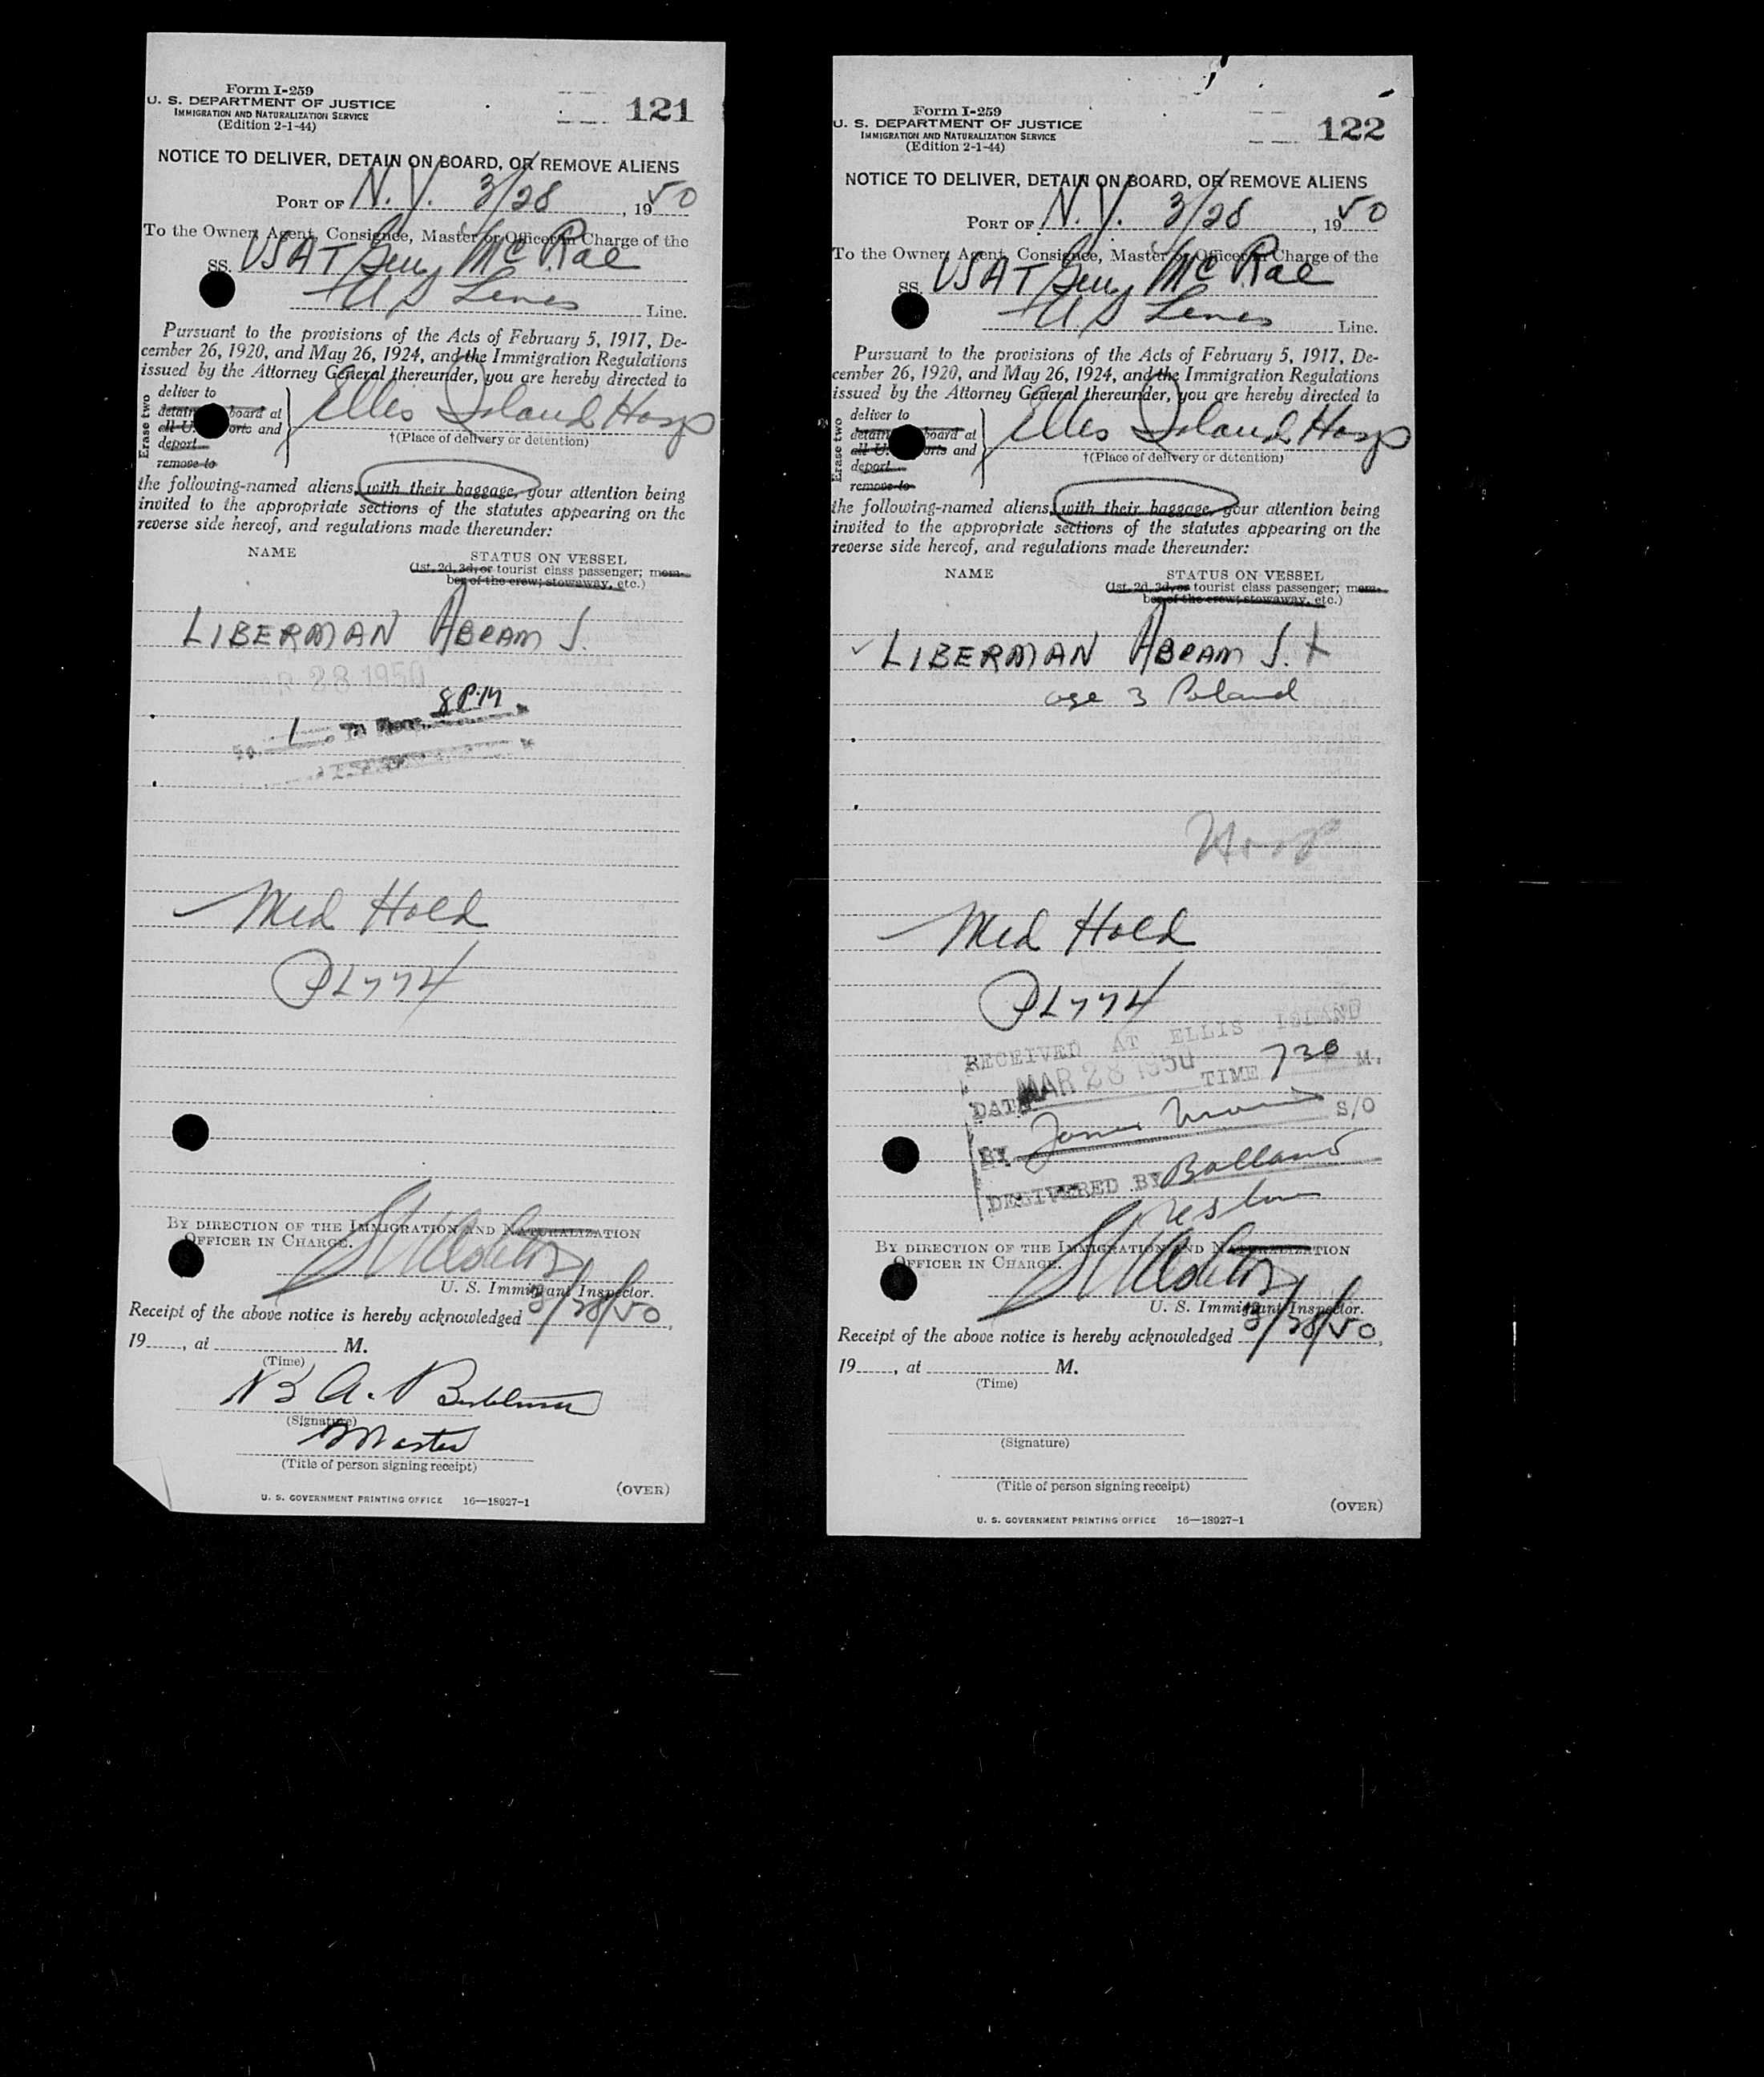 Form I-259
U. S. DEPARTMENT OF JUSTICE
IMMIGRATION AND NATURALIZATION SERVICE
(Edition 2-1-44)
121
NOTICE TO DELIVER, DETAIN ON BOARD, OR REMOVE ALIENS
PORT OF N. Y. 3/28, 1950
To the Owner, Agent, Consignee, Master or Officer in Charge of the
SS. USAT McRae
U S Lines Line.
Pursuant to the provisions of the Acts of February 5, 1917, De-
cember 26, 1920, and May 26, 1924, and the Immigration Regulations
issued by the Attorney General thereunder, you are hereby directed to
Erase two
deliver to
detain board at
all U. and
deport
remove to
Ellis Island Hosp
†(Place of delivery or detention)
the following-named aliens, with their baggage, your attention being
invited to the appropriate sections of the statutes appearing on the
reverse side hereof, and regulations made thereunder:
NAME
STATUS ON VESSEL
(1st, 2d, 3d, or tourist class passenger; mem-
ber of the crew; stowaway, etc.)
LIBERMAN ABRAM J.
MAR 28 1950
1 8 PM
Med Hold
BY DIRECTION OF THE IMMIGRATION AND NATURALIZATION
OFFICER IN CHARGE.
U. S. Immigrant Inspector.
Receipt of the above notice is hereby acknowledged 3/28/50,
19____, at ____ M.
(Time)
(Signature)
Master
(Title of person signing receipt)
(OVER)
U. S. GOVERNMENT PRINTING OFFICE 16—18927-1
Form I-259
U. S. DEPARTMENT OF JUSTICE
IMMIGRATION AND NATURALIZATION SERVICE
(Edition 2-1-44)
122
NOTICE TO DELIVER, DETAIN ON BOARD, OR REMOVE ALIENS
PORT OF N. Y. 3/28, 1950
To the Owner, Agent, Consignee, Master or Officer in Charge of the
SS. USAT McRae
U S Lines Line.
Pursuant to the provisions of the Acts of February 5, 1917, De-
cember 26, 1920, and May 26, 1924, and the Immigration Regulations
issued by the Attorney General thereunder, you are hereby directed to
Erase two
deliver to
detain board at
all U. and
deport
remove to
Ellis Island Hosp
†(Place of delivery or detention)
the following-named aliens, with their baggage, your attention being
invited to the appropriate sections of the statutes appearing on the
reverse side hereof, and regulations made thereunder:
NAME
STATUS ON VESSEL
(1st, 2d, 3d, or tourist class passenger; mem-
ber of the crew; stowaway, etc.)
✓ LIBERMAN ABRAM J. X
age 3 Poland
Hosp
Med Hold
RECEIVED AT ELLIS ISLAND
DATE MAR 28 1950 TIME 730 M.
BY James S/O
DELIVERED BY
BY DIRECTION OF THE IMMIGRATION AND NATURALIZATION
OFFICER IN CHARGE.
U. S. Immigrant Inspector.
Receipt of the above notice is hereby acknowledged 3/28/50,
19____, at ____ M.
(Time)
(Signature)
(Title of person signing receipt)
(OVER)
U. S. GOVERNMENT PRINTING OFFICE 16—18927-1